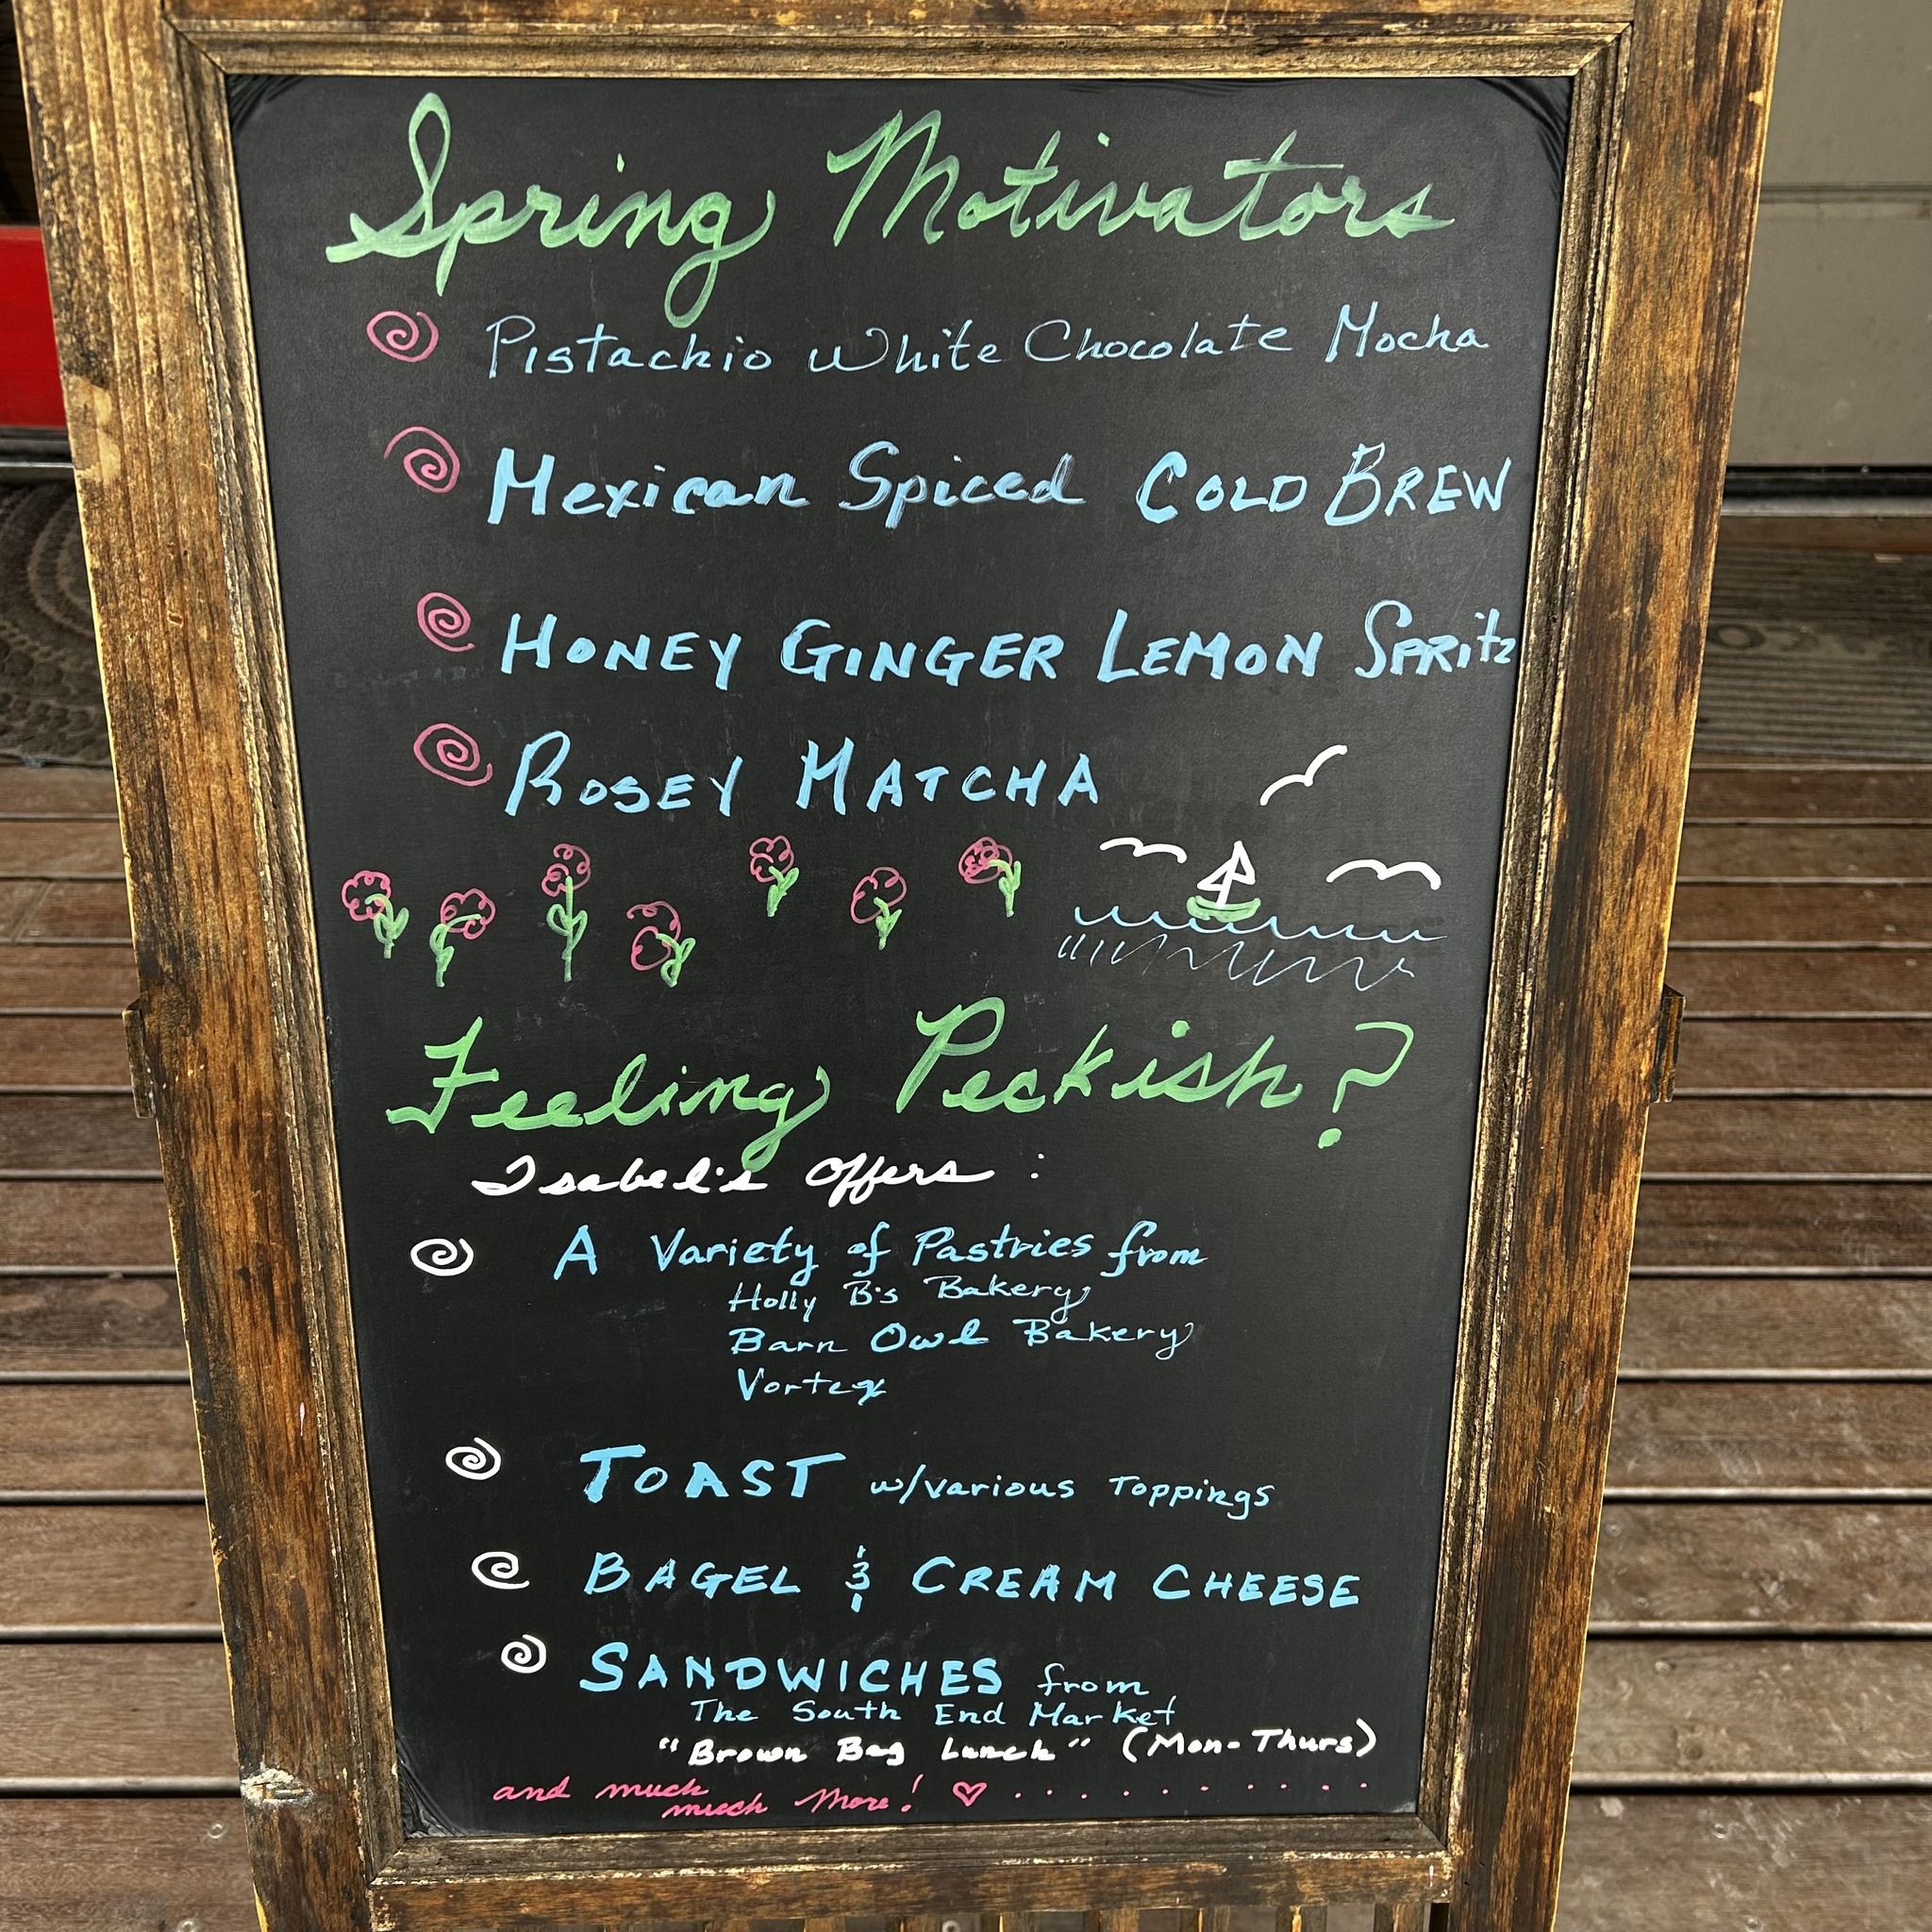 Spring Motivators
Pistachio White Chocolate Mocha
Mexican Spiced COLD BREW
HONEY GINGER LEMON SPRitz
ROSEY MATCHA
Feeling Peckish?
Isabel's Offers :
A Variety of Pastries from
Holly B's Bakery
Barn Owl Bakery
Vortex
TOAST w/various Toppings
BAGEL & CREAM CHEESE
SANDWICHES from
The South End Market
"Brown Bag Lunch" (Mon-Thurs)
and much
much More! ♡ . . . . . . . . . . .